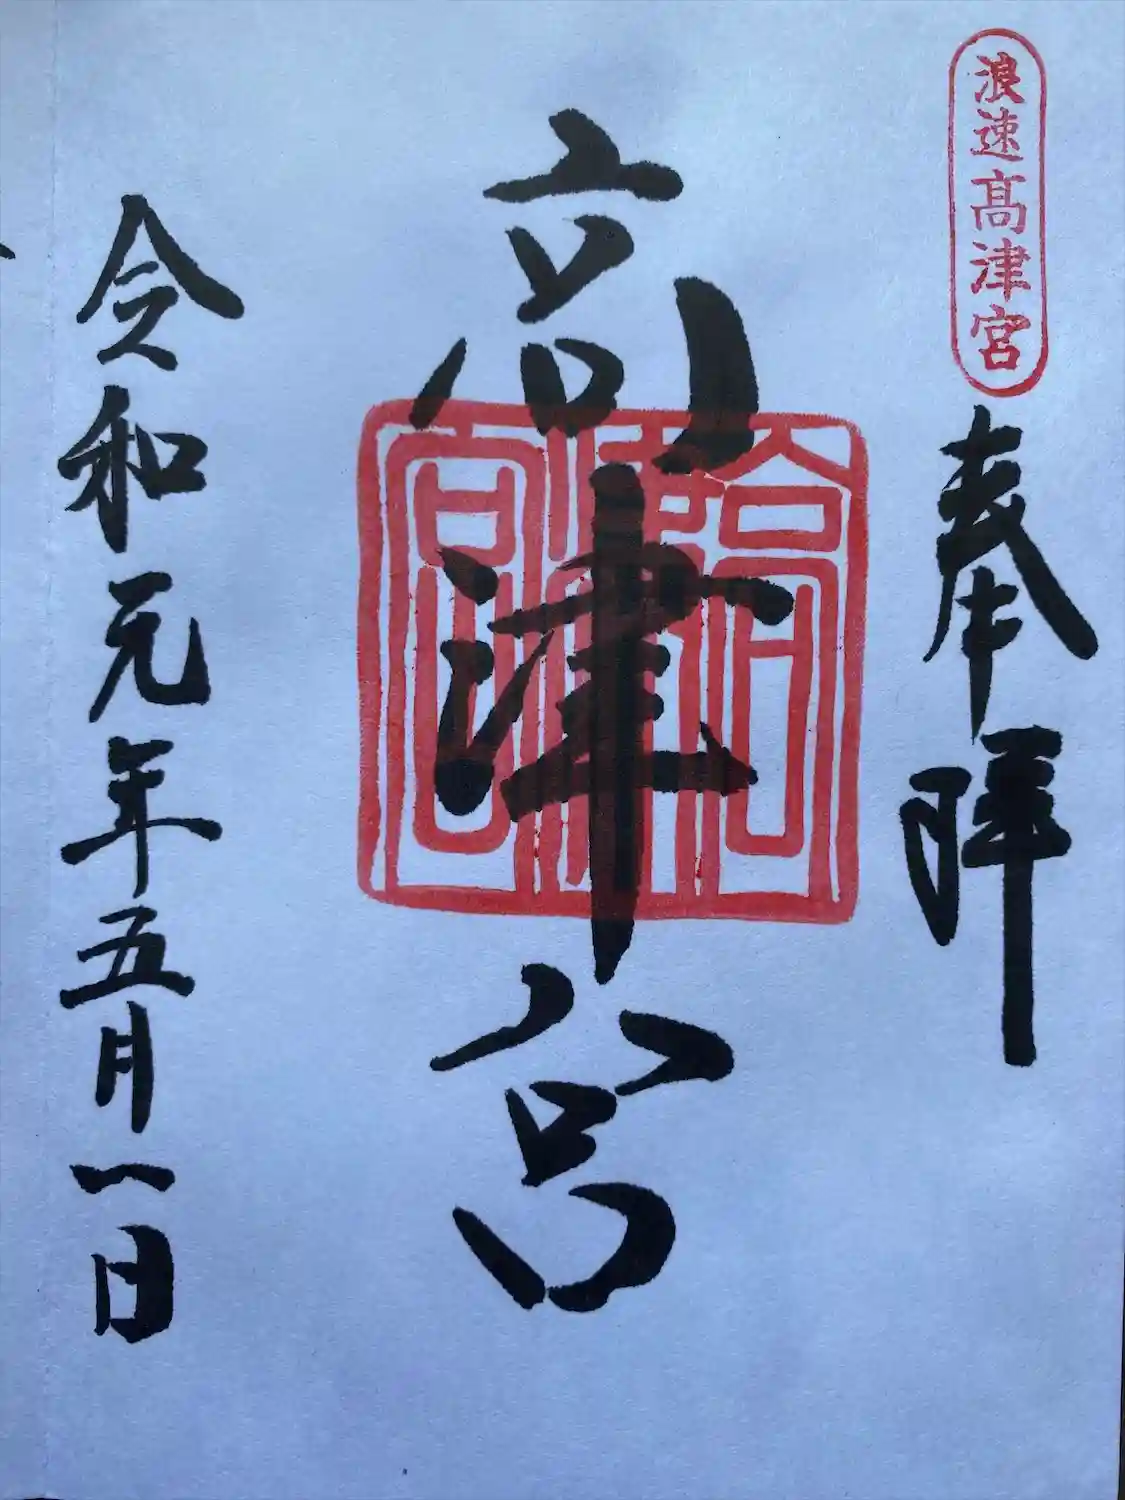 浪速髙津宮
奉拝
高津宮
令和元年五月一日